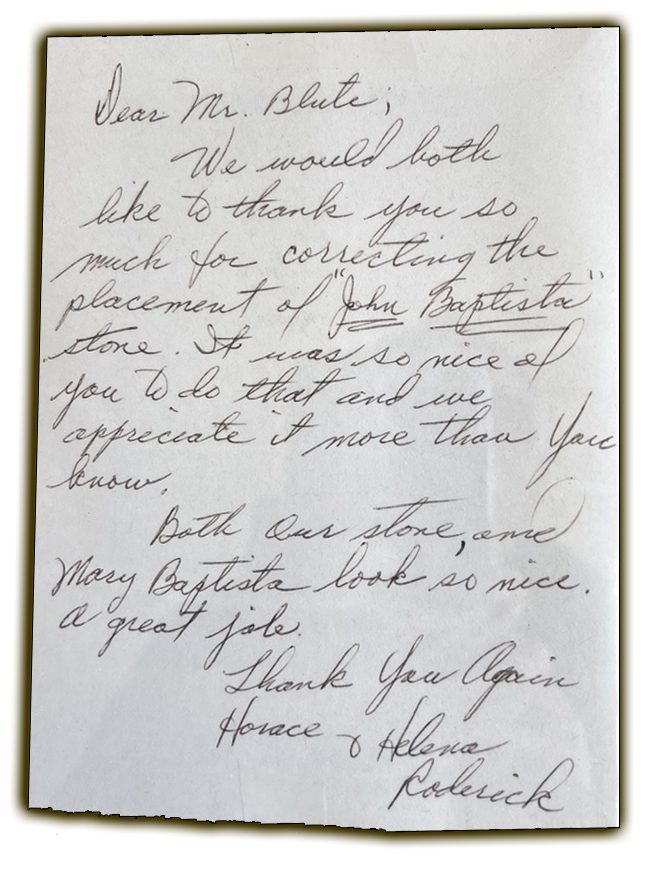 Dear Mr. Blute,
We would both
like to thank you so
much for correcting the
placement of "John Baptista"
stone. It was so nice of
you to do that and we
appreciate it more than You
know.
Both Our stone, and
Mary Baptista look so nice.
A great job.
Thank You Again
Horace & Helena
Roderick